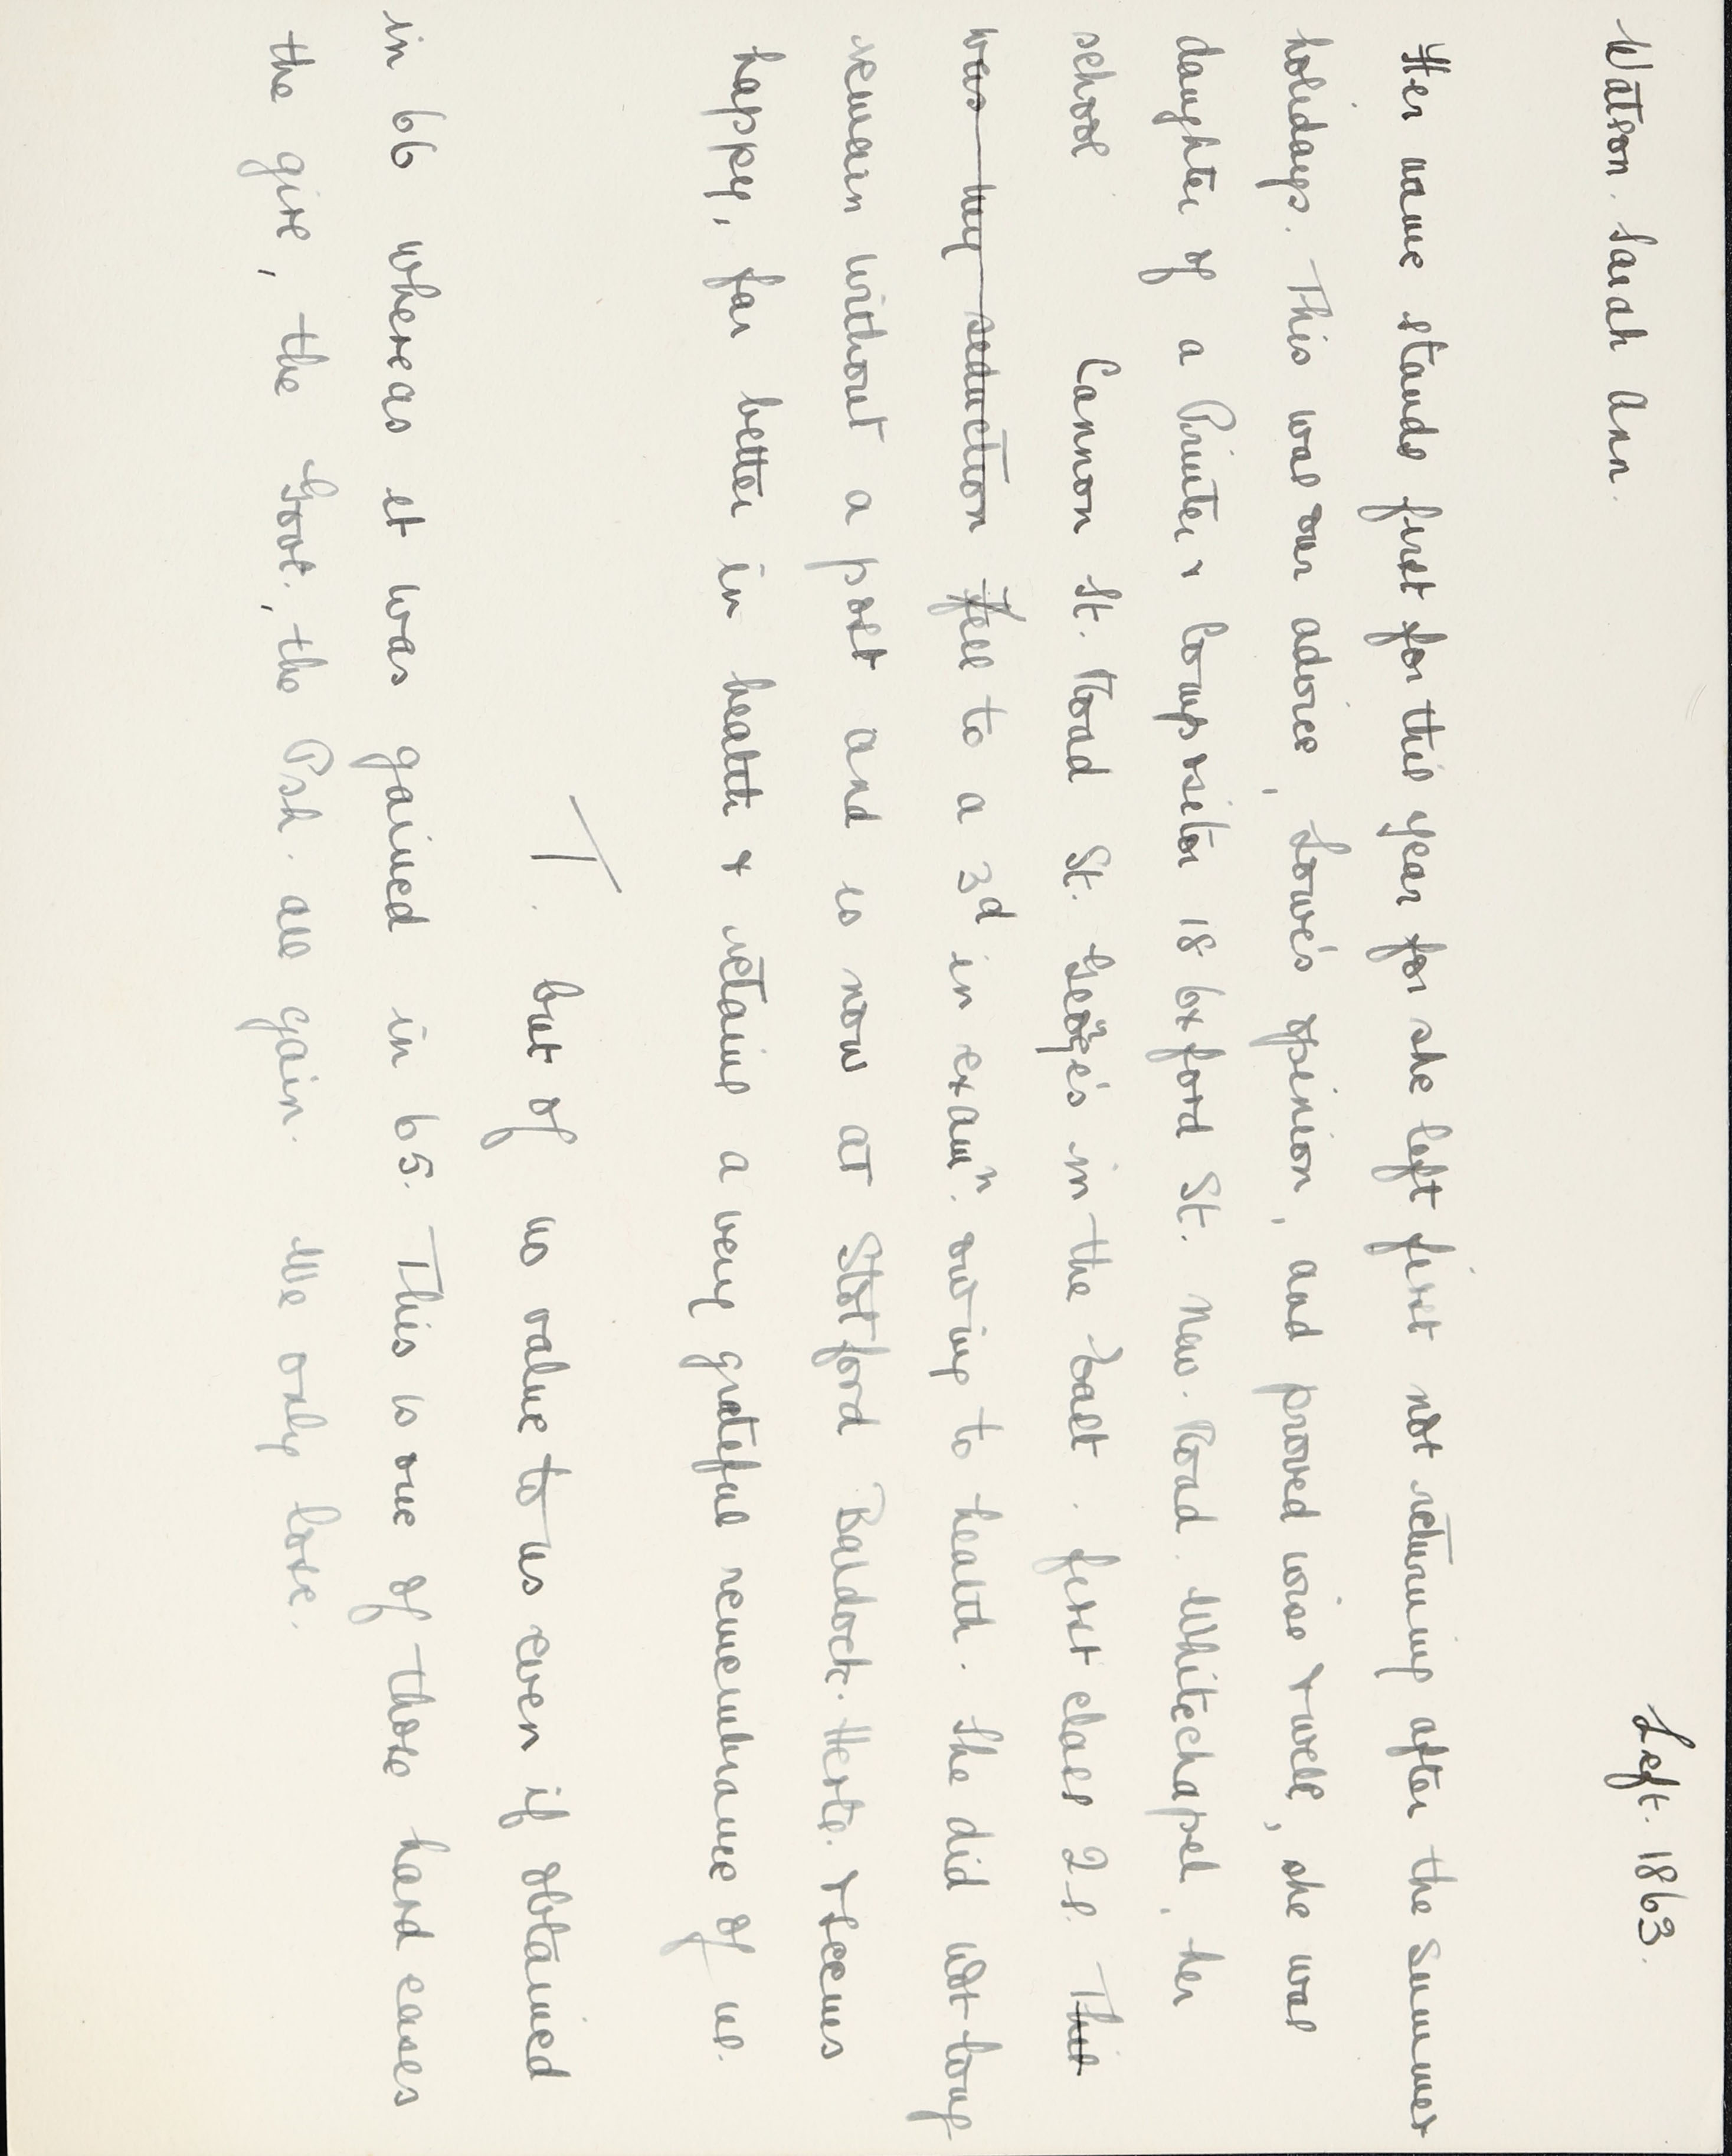 Left. 1863.
Watson. Sarah Ann.
Her name stands first for this year for she left first not returning after the Summer
holidays. This was our advice, Lowe's opinion, and proved wise & well, she was
daughter of a Printer & Compositor 18 Oxford St. New. Road. Whitechapel, her
school Cannon St. Road St. George's in the East. first class 2s. This
was my seduction Fell to a 3d in examn. owing to health. She did not long
remain without a post and is now at Stotford Baldock. Herts. & seems
happy, far better in health & retains a very grateful remembrance of us.
T. but of no value to us even if obtained
in 66 whereas it was gained in 65. This is one of those hard cases
the girl, the Govt., the Psh. all gain. We only lose.